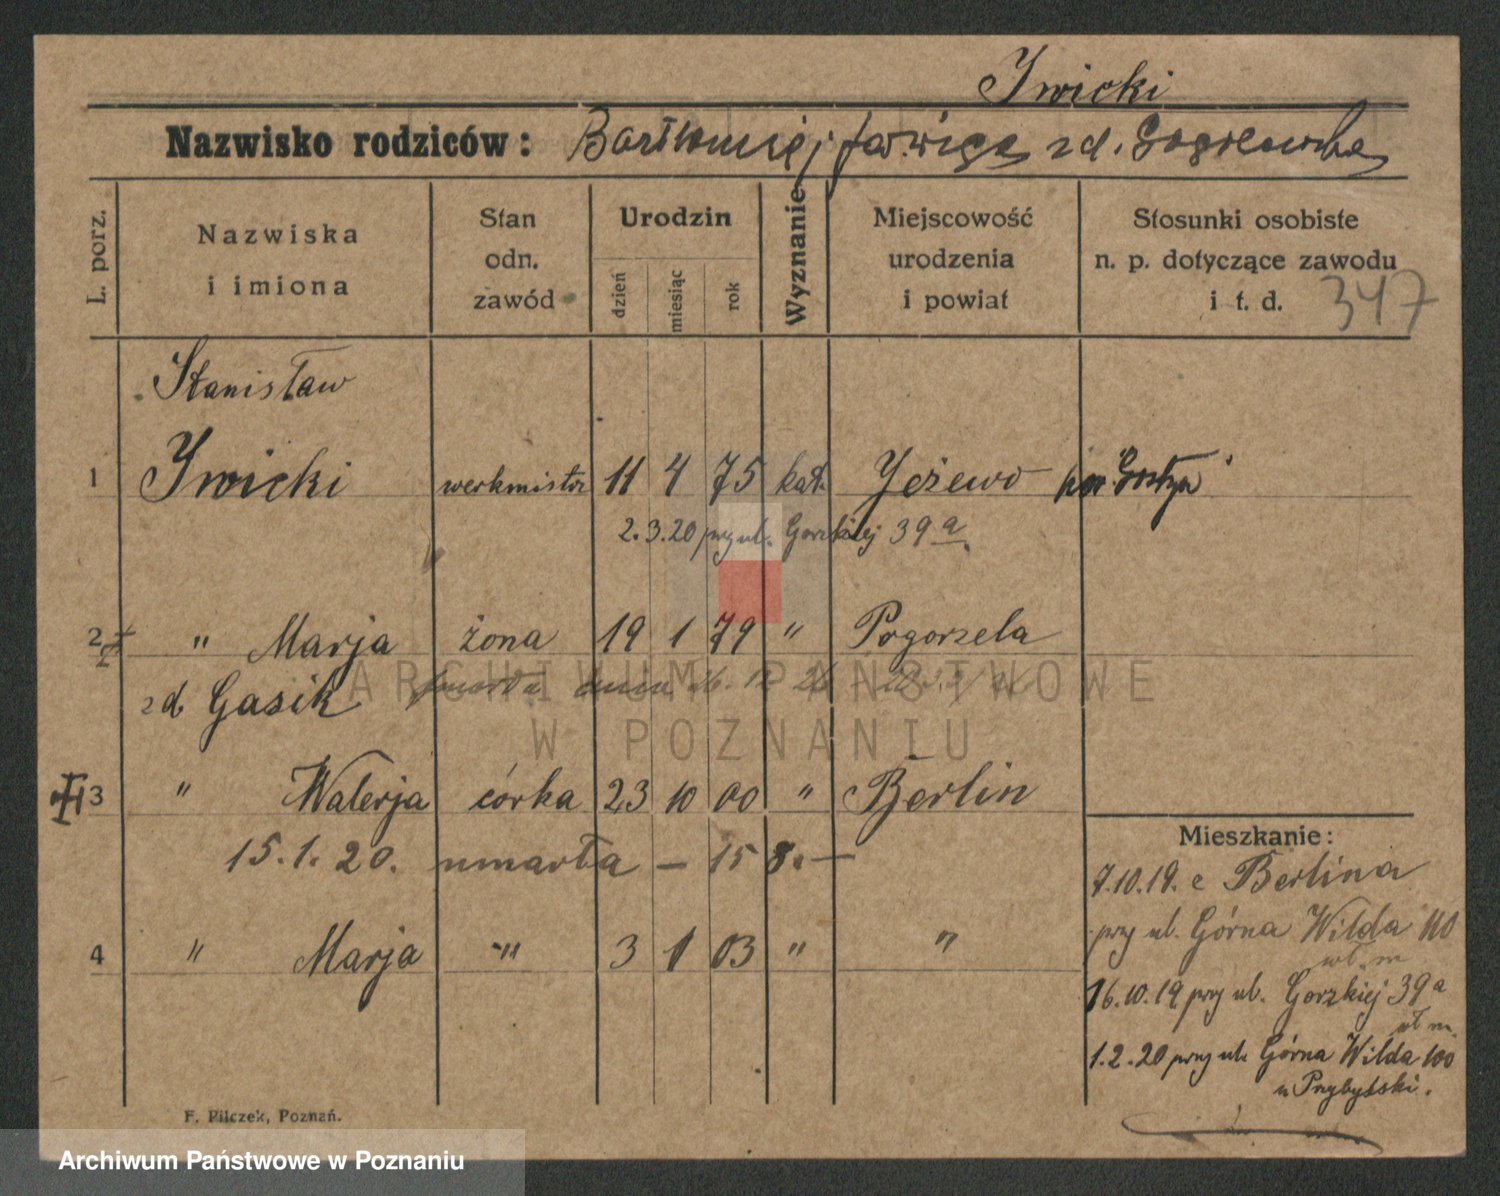 Iwicki
Nazwisko rodziców: Bartłomiej Jadwiga zd. Gogolewska
L. porz.
Nazwiska i imiona
Stan odn. zawód
Urodzin
dzień
miesiąc
rok
Wyznanie
Miejscowość urodzenia i powiat
Stosunki osobiste n. p. dotyczące zawodu i t. d.
347
Stanisław
1 Iwicki werkmistrz 11 4 75 kat. Jeżewo pow. Gostyń
2.3.20 przy ul. Gorzkiej 39a
2 " Marja żona 19 1 79 " Pogorzela
zd Gasik zmarła dnia
3 " Walerja córka 23 10 00 " Berlin
15.1.20. umarła – 15 8. –
4 " Marja " 3 1 03 " "
Mieszkanie:
7.10.19. z Berlina
przy ul. Górna Wilda 110
wł. m
16.10.19 przy ul. Gorzkiej 39a
wł m.
1.2.20 przy ul. Górna Wilda 100
u Przybylski.
F. Pilczek, Poznań.
ARCHIWUM PAŃSTWOWE
W POZNANIU
Archiwum Państwowe w Poznaniu